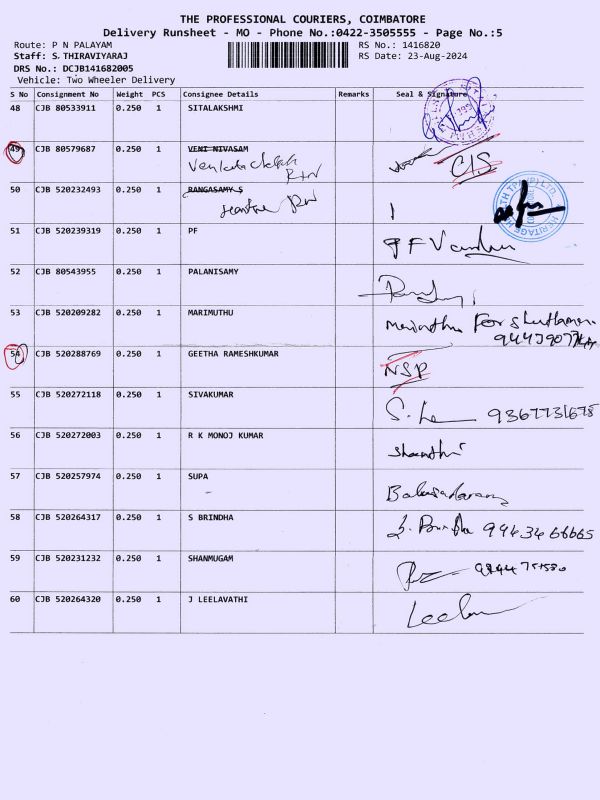 THE PROFESSIONAL COURIERS, COIMBATORE
Delivery Runsheet - MO - Phone No.:0422-3505555 - Page No.:5
Route: P N PALAYAM RS No.: 1416820
Staff: S.THIRAVIYARAJ RS Date: 23-Aug-2024
DRS No.: DCJB141682005
Vehicle: Two Wheeler Delivery
S No Consignment No Weight PCS Consignee Details Remarks Seal & Signature
48 CJB 80533911 0.250 1 SITALAKSHMI
49 CJB 80579687 0.250 1 VENI NIVASAM C/S
50 CJB 520232493 0.250 1 RANGASAMY S
51 CJB 520239319 0.250 1 PF
52 CJB 80543955 0.250 1 PALANISAMY
53 CJB 520209282 0.250 1 MARIMUTHU
54 CJB 520288769 0.250 1 GEETHA RAMESHKUMAR NSP
55 CJB 520272118 0.250 1 SIVAKUMAR
9367731678
56 CJB 520272003 0.250 1 R K MONOJ KUMAR
Shanthi
57 CJB 520257974 0.250 1 SUPA
58 CJB 520264317 0.250 1 S BRINDHA
59 CJB 520231232 0.250 1 SHANMUGAM
60 CJB 520264320 0.250 1 J LEELAVATHI